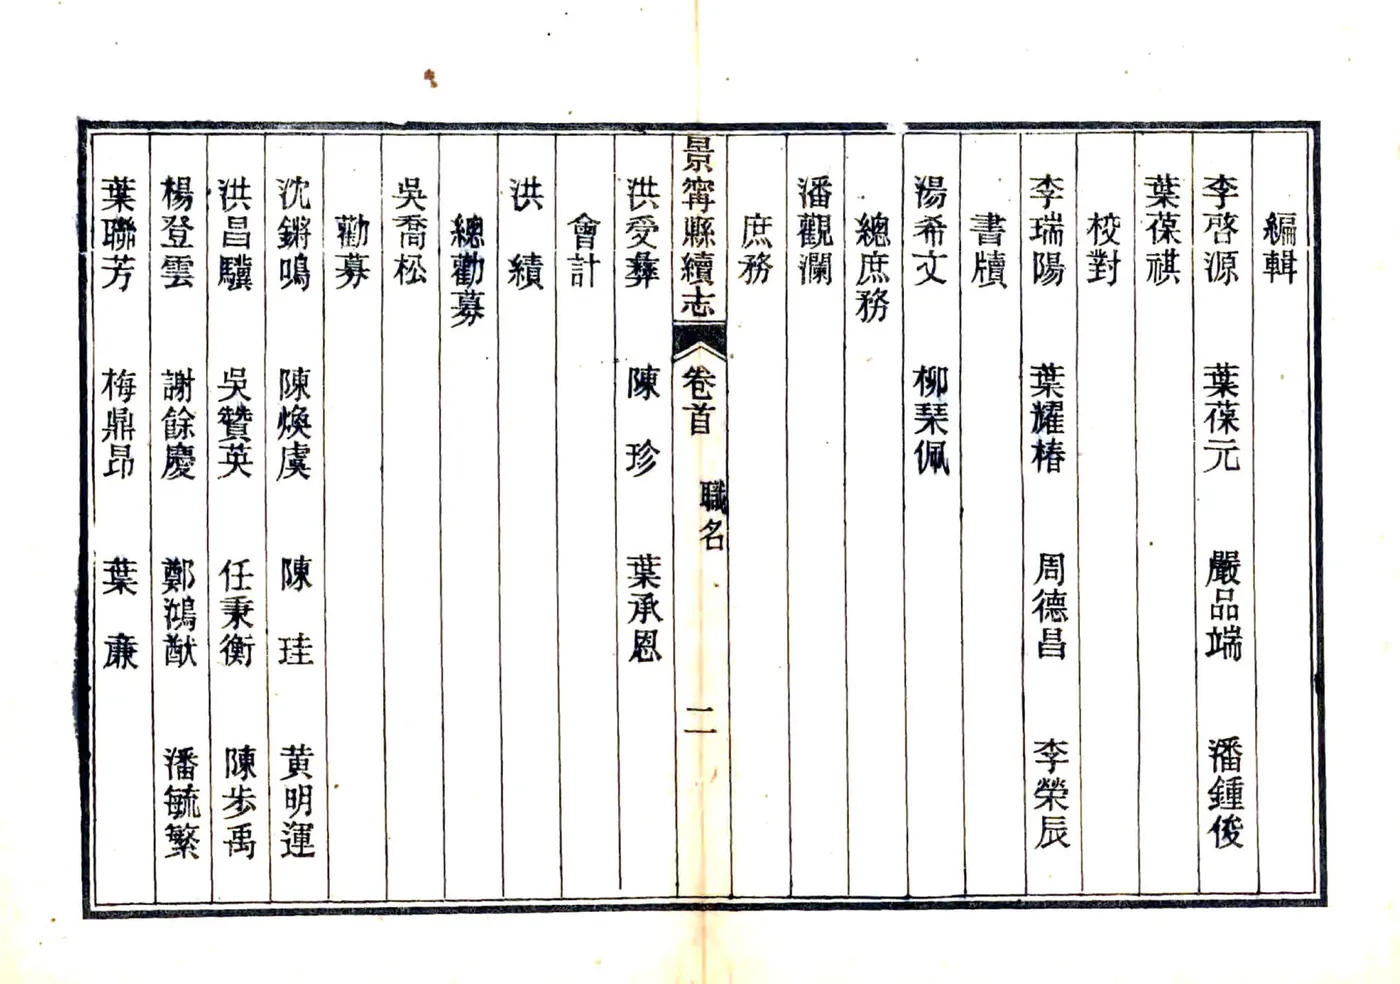 編輯
李啓源 葉葆元 嚴品端 潘鍾俊
葉葆祺
校對
李瑞陽 葉耀椿 周德昌 李榮辰
書牘
湯希文 柳琹佩
總庶務
潘觀瀾
庶務
景甯縣續志 卷首 職名 二
洪受彝 陳珍 葉承恩
會計
洪績
總勸募
吳喬松
勸募
沈鏘鳴 陳煥虞 陳珪 黄明運
洪昌驥 吳贊英 任秉衡 陳步禹
楊登雲 謝餘慶 鄭鴻猷 潘毓繁
葉聯芳 梅鼎昂 葉廉